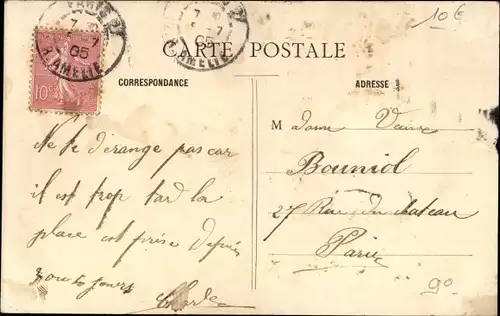 10€
CARTE POSTALE
CORRESPONDANCE
ADRESSE
PARIS
7
05
R. AMÉLIE
7
05
AMELIE
10
Ne te dérange pas car
il est trop tard la
place est prise depuis
toujours
Charles
Madame Veuve
Bouniol
27 Rue du chateau
Paris
90